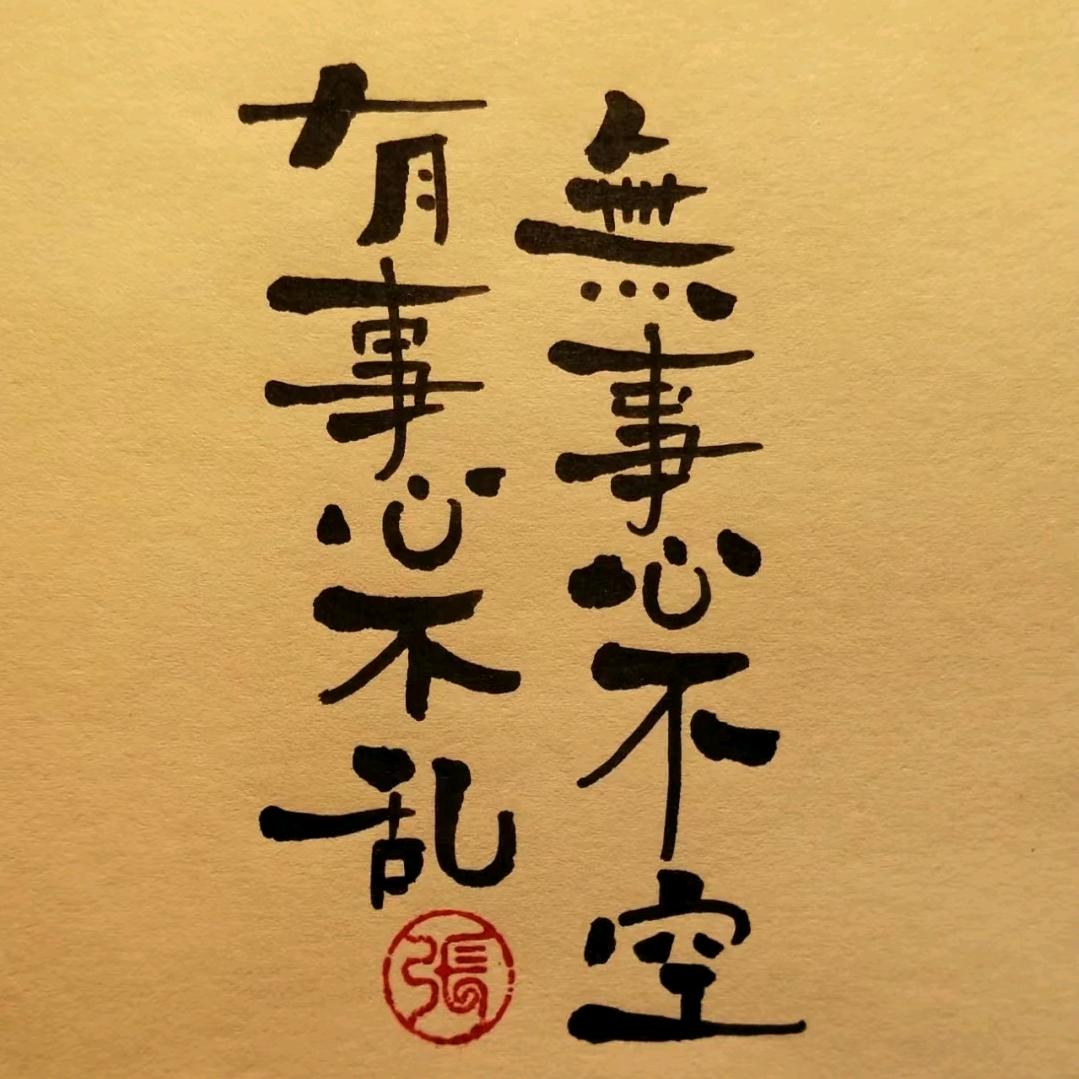 無事心不空
有事心不乱
張